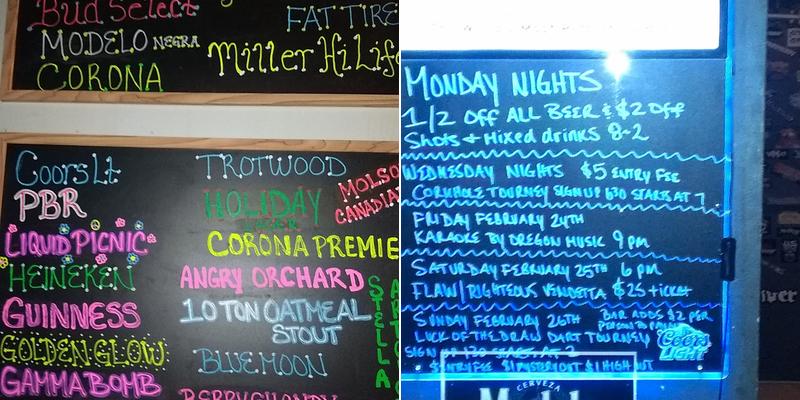 Bud Select
MODELO NEGRA
CORONA
FAT TIRE
Miller Hi Life
Coors Lt
PBR
LIQUID PICNIC
HEINEKEN
GUINNESS
GOLDEN GLOW
GAMMA BOMB
TROTWOOD
HOLIDAY
CORONA PREMIE
ANGRY ORCHARD
10 TON OATMEAL
STOUT
BLUE MOON
MOLSO
CANADIA
STELLA
MONDAY NIGHTS
1/2 OFF ALL BEER & $2 Off
Shots + Mixed drinks 8-2
WEDNESDAY NIGHTS $5 ENTRY FEE
CORNHOLE TOURNEY SIGN UP 630 STARTS AT 7
FRIDAY FEBRUARY 24TH
KARAOKE BY OREGON MUSIC 9 PM
SATURDAY FEBRUARY 25TH 6 PM
FLAW/RIGHTEOUS VENDETTA $25 + ticket
SUNDAY FEBRUARY 26TH
BAR ADDS $2 PER
PERSON TO PAYOUT
LUCK OF THE DRAW DART TOURNEY
SIGN UP 130 STARTS AT 2
$ ENTRY FEE $1 MYSTERY OUT $1 HIGH OUT
Coors
LIGHT
CERVEZA